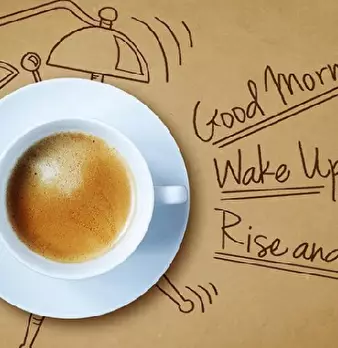 Good Morn
Wake Up
Rise and